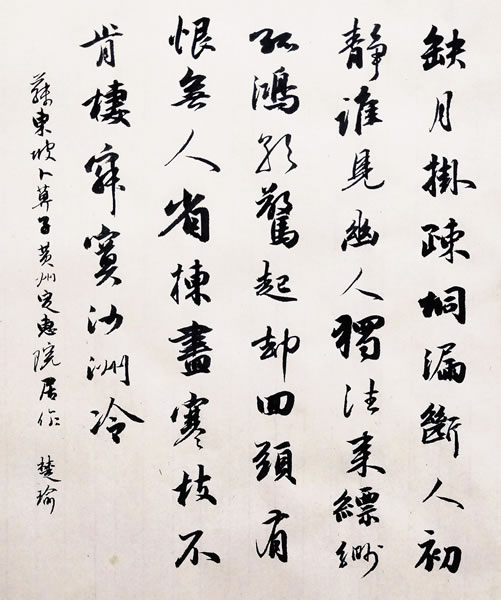 缺月掛疎桐漏斷人初
靜誰見幽人獨往來縹緲
孤鴻影驚起却回頭有
恨無人省揀盡寒枝不
肯棲寂寞沙洲冷
蘇東坡卜算子黄州定惠院居作 楚瑜